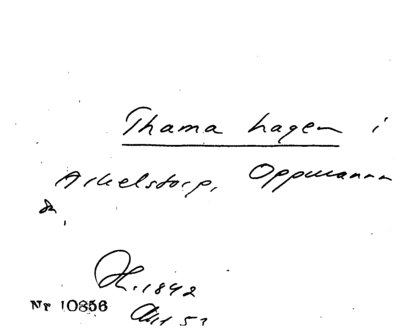 Thama hagen i
Arkelstorp, Oppmanna
sn.
H. 1842
Nr 10856